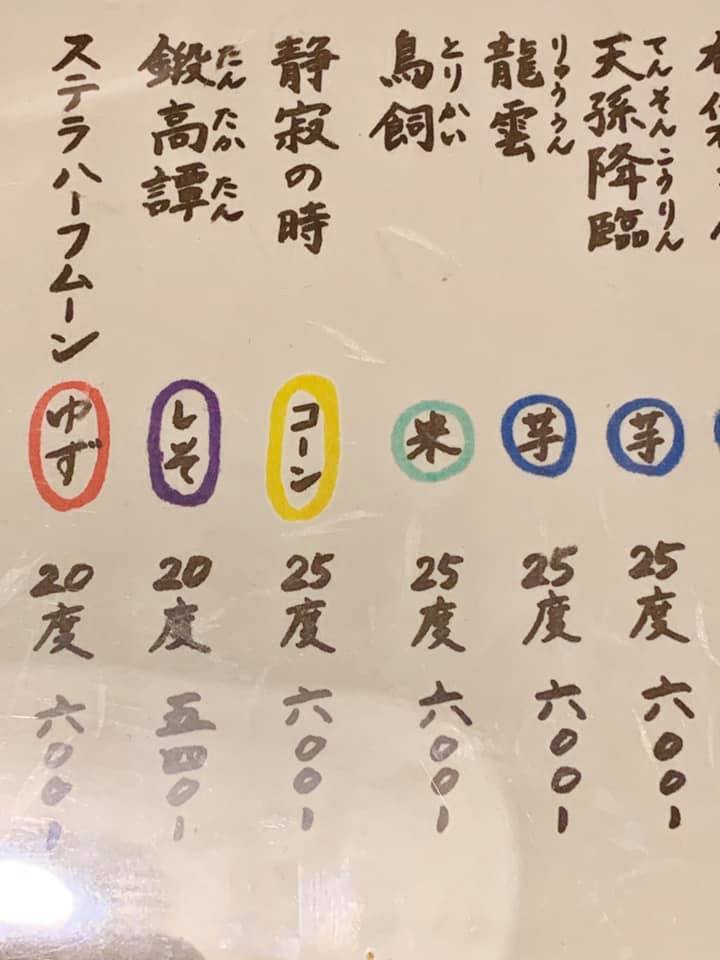 天孫降臨 てんそんこうりん 芋 25度 六〇〇ー
龍雲 りゅううん 芋 25度 六〇〇ー
鳥飼 とりかい 米 25度 六〇〇ー
静寂の時 コーン 25度 六〇〇ー
鍛高譚 たんたかたん しそ 20度 五四〇ー
ステラハーフムーン ゆず 20度 六〇〇ー